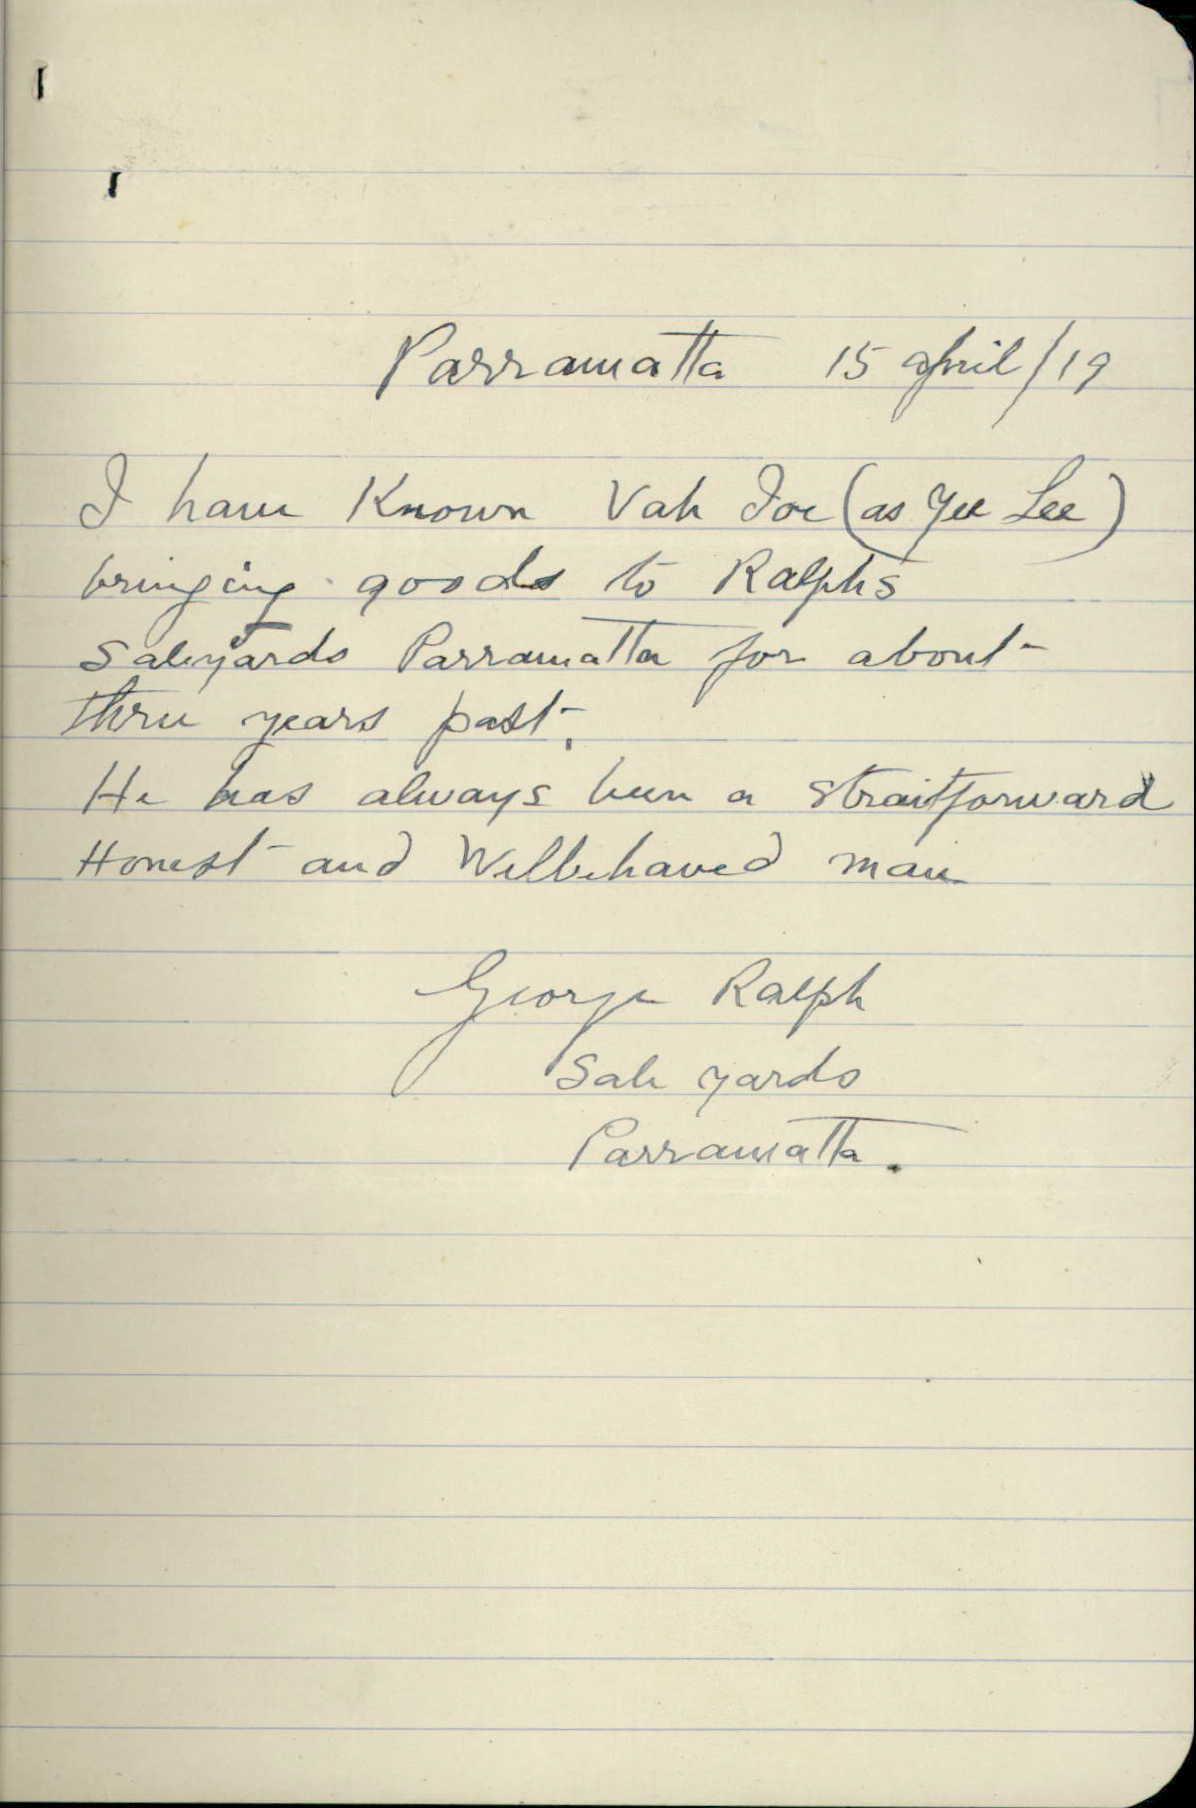 Parramatta 15 April/19
I have Known Vah Joe (as Yee Lee)
bringing goods to Ralphs
Saleyards Parramatta for about
three years past.
He has always been a straitforward
Honest and Wellbehaved man
George Ralph
Sale yards
Parramatta.